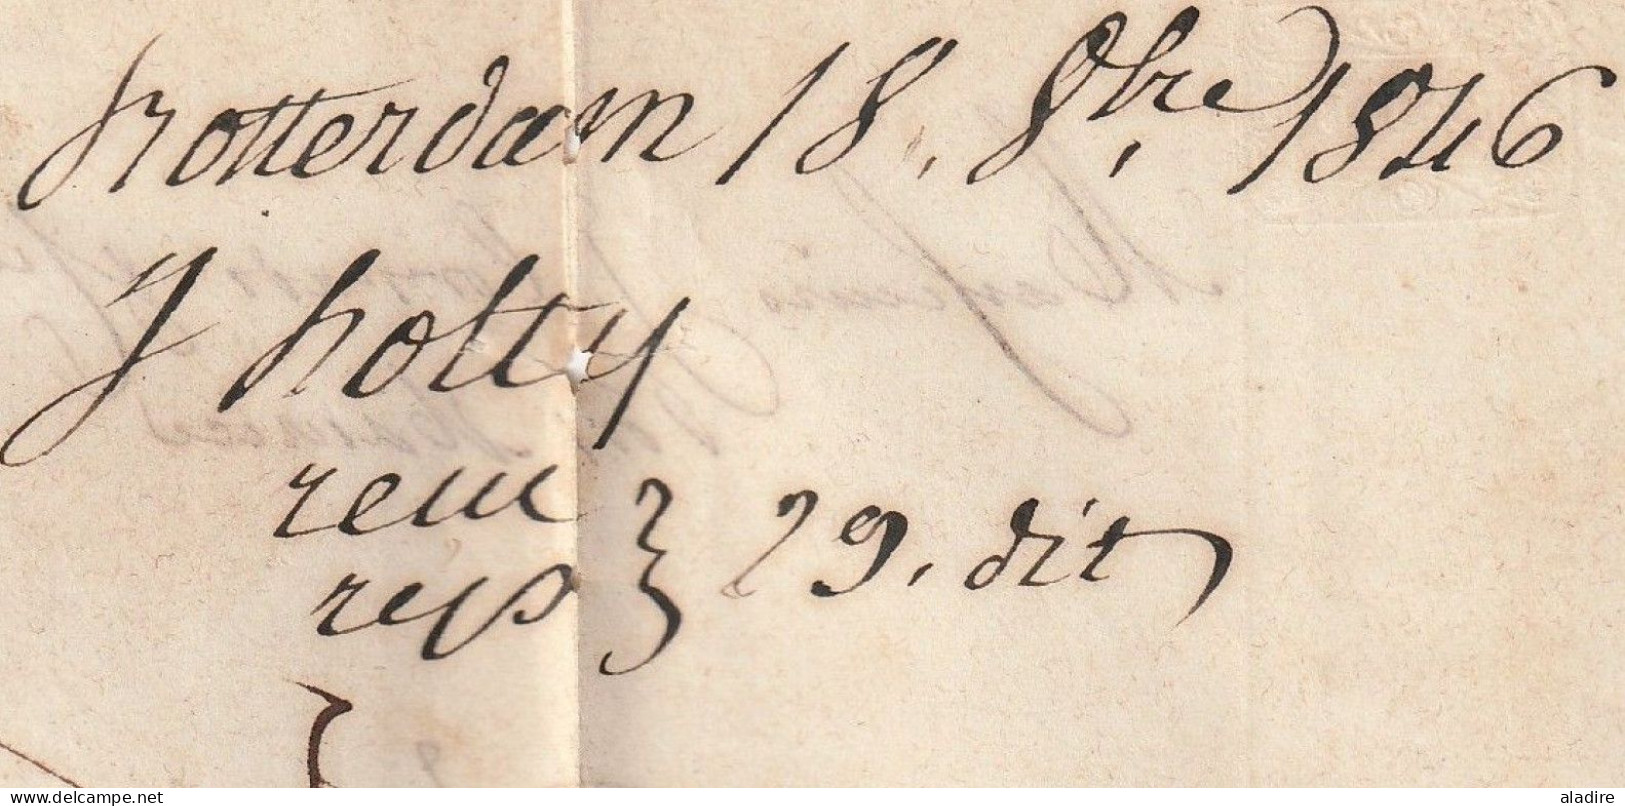 Rotterdam 18. 8bre 1846
J Kolty
recu
reps } 29. dit
delcampe.net
aladire